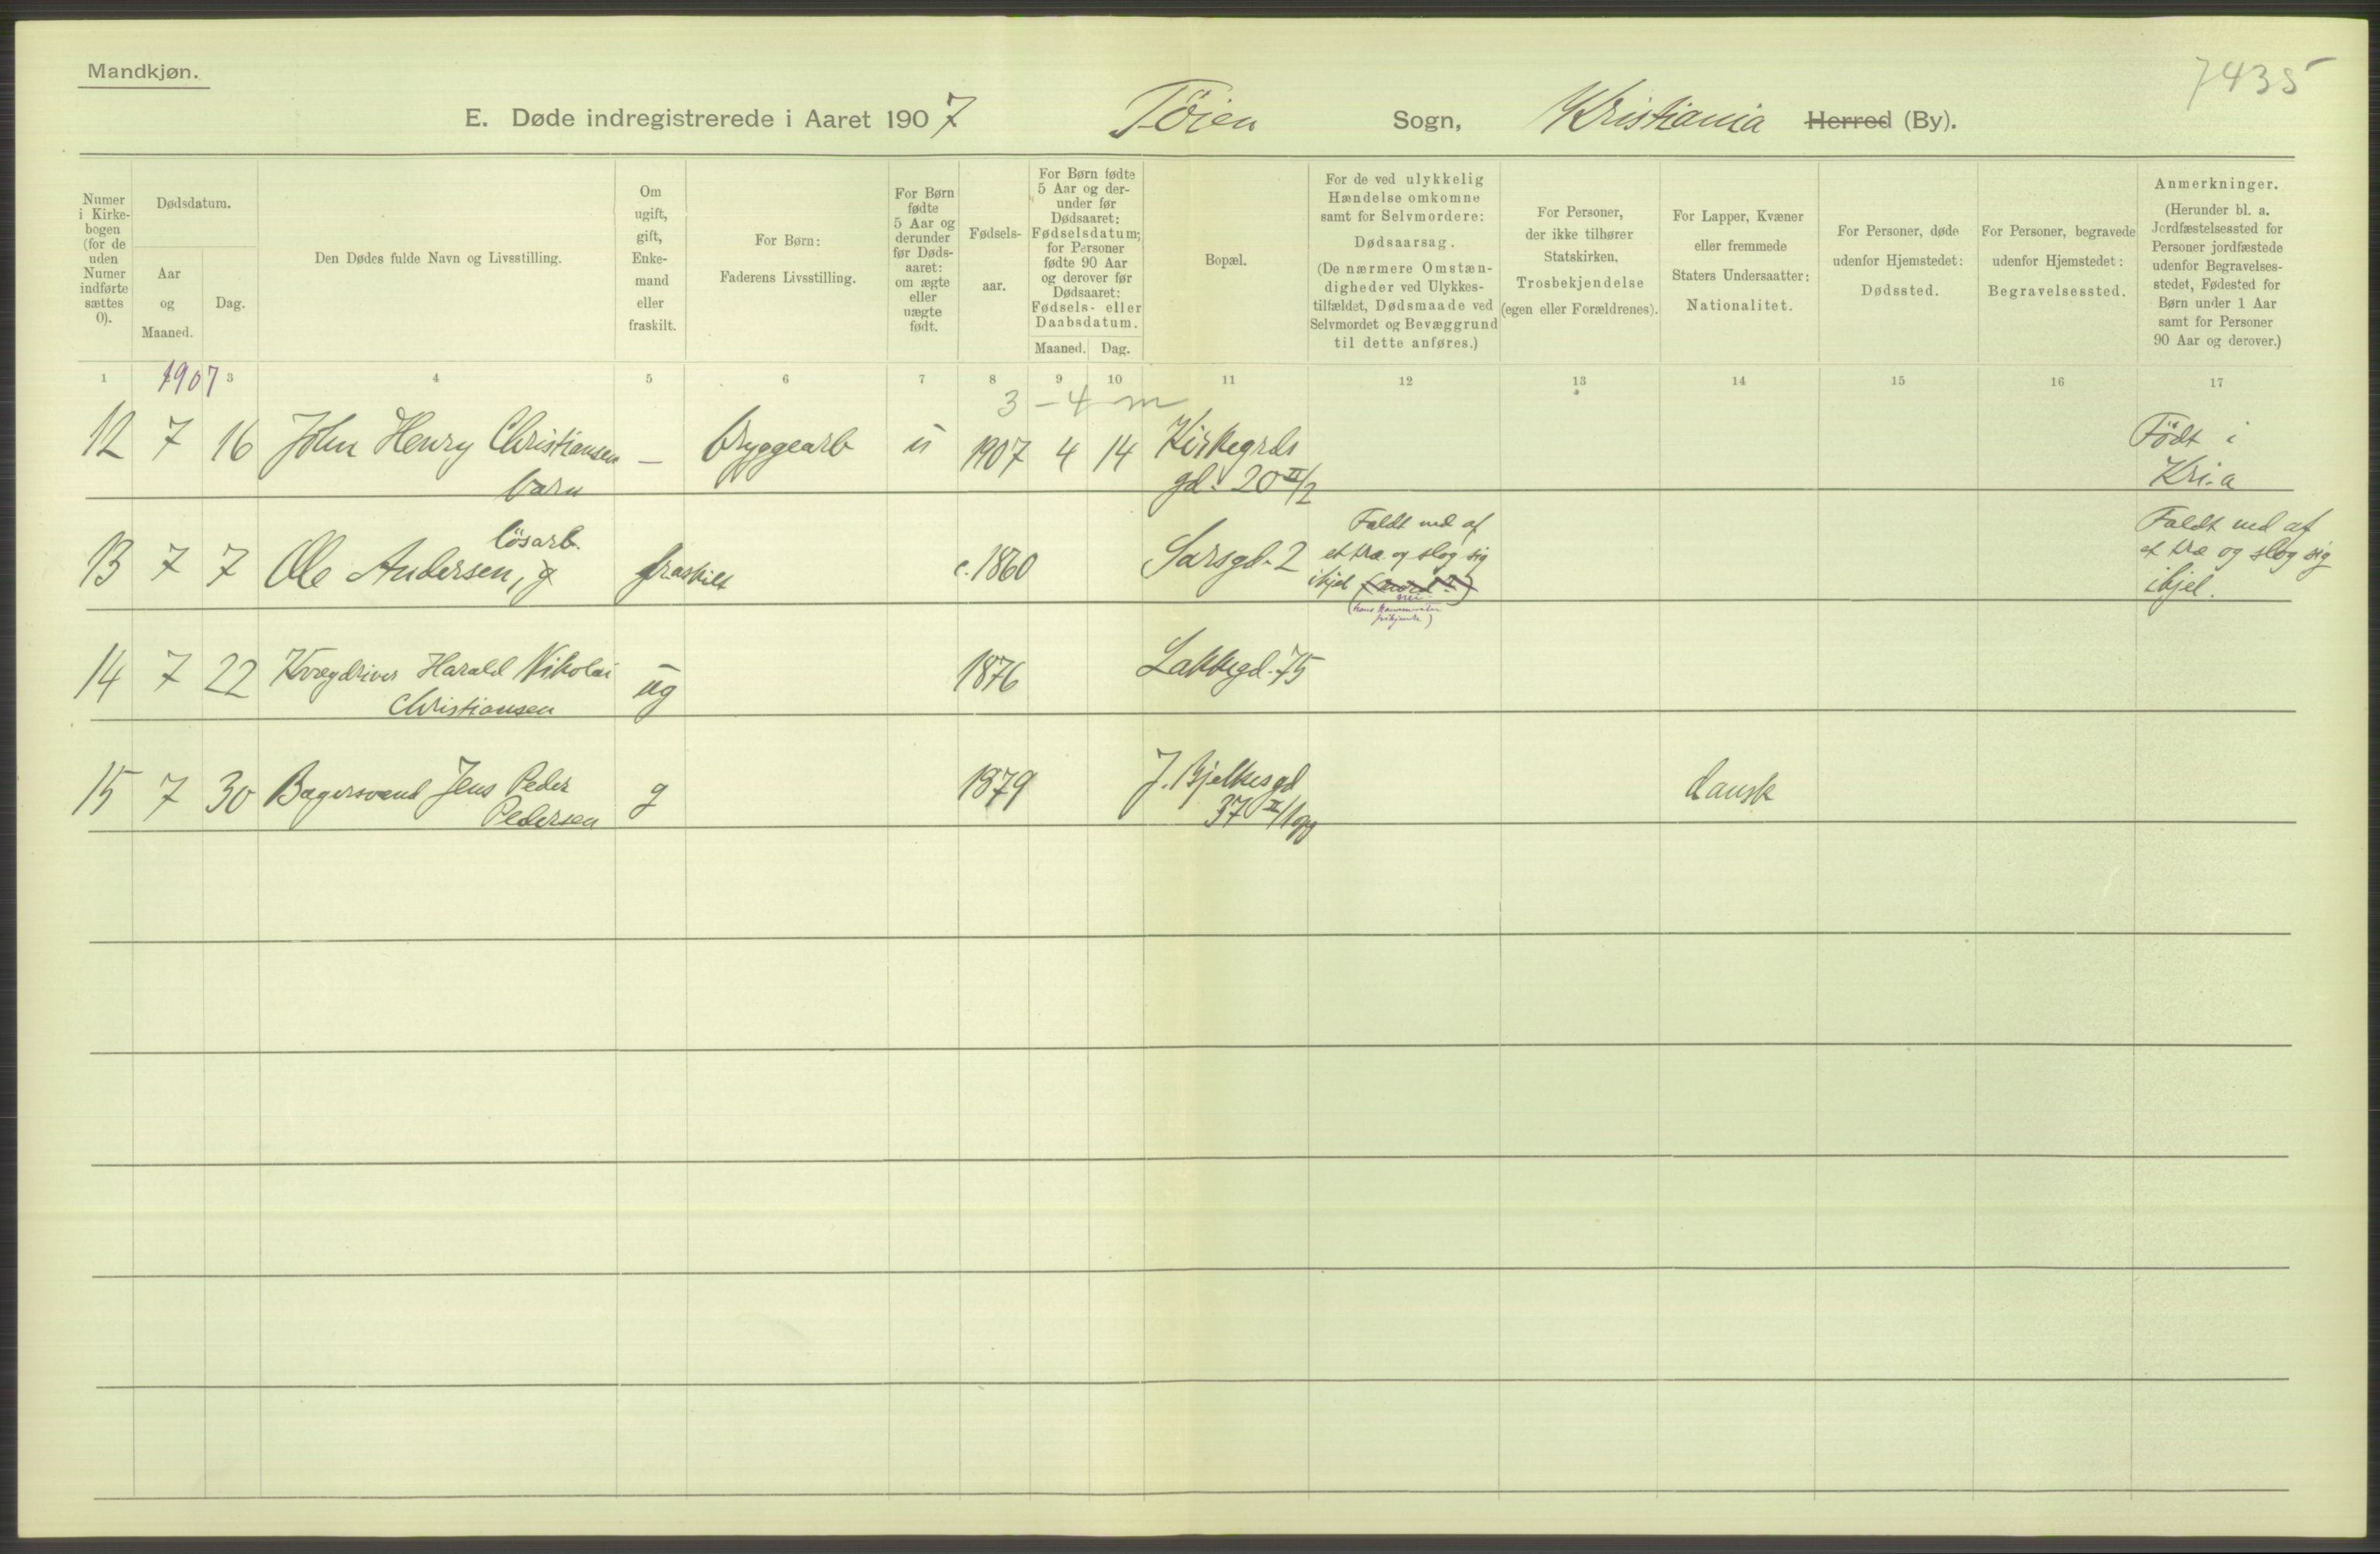 Mandkjøn.
7435
E. Døde indregistrerede i Aaret 1907 Töien Sogn, Kristiania Herred (By).
Numer i Kirkebogen (for de uden Numer indførte sættes 0).
Dødsdatum.
Aar og Maaned.
Dag.
Den Dødes fulde Navn og Livsstilling.
Om ugift, gift, Enkemand eller fraskilt.
For Børn:
Faderens Livsstilling.
For Børn fødte 5 Aar og derunder før Dødsaaret: om ægte eller uægte født.
Fødselsaar.
For Børn fødte 5 Aar og derunder før Dødsaaret: Fødselsdatum; for Personer fødte 90 Aar og derover før Dødsaaret: Fødsels- eller Daabsdatum.
Maaned. Dag.
Bopæl.
For de ved ulykkelig Hændelse omkomne samt for Selvmordere:
Dødsaarsag.
(De nærmere Omstændigheder ved Ulykkestilfældet, Dødsmaade ved Selvmordet og Bevæggrund til dette anføres.)
For Personer, der ikke tilhører Statskirken,
Trosbekjendelse
(egen eller Forældrenes).
For Lapper, Kvæner eller fremmede Staters Undersaatter:
Nationalitet.
For Personer, døde udenfor Hjemstedet:
Dødssted.
For Personer, begravede udenfor Hjemstedet:
Begravelsessted.
Anmerkninger.
(Herunder bl. a. Jordfæstelsessted for Personer jordfæstede udenfor Begravelsesstedet, Fødested for Børn under 1 Aar samt for Personer 90 Aar og derover.)
1 1907 3 4 5 6 7 8 9 10 11 12 13 14 15 16 17
3-4 m
12 7 16 John Henry Christiansen — bryggearb ü 1907 4 14 Kirkegrds Födt i
barn gd. 20 II/2 Kri.a
lösarb. Faldt ned af Faldt ned af
13 7 7 Ole Andersen, g fraskilt c. 1860 Sarsgd. 2 et træ og slog sig et træ og slog sig
ihjel (mord?) ihjel.
nei
14 7 22 Kvægdriver Harald Nikolai ug 1876 Lakkegd. 75
Christiansen
15 7 30 Bagersvend Jens Peder g 1879 J. Bjelkesgd dansk
Pedersen 37 II/1 og